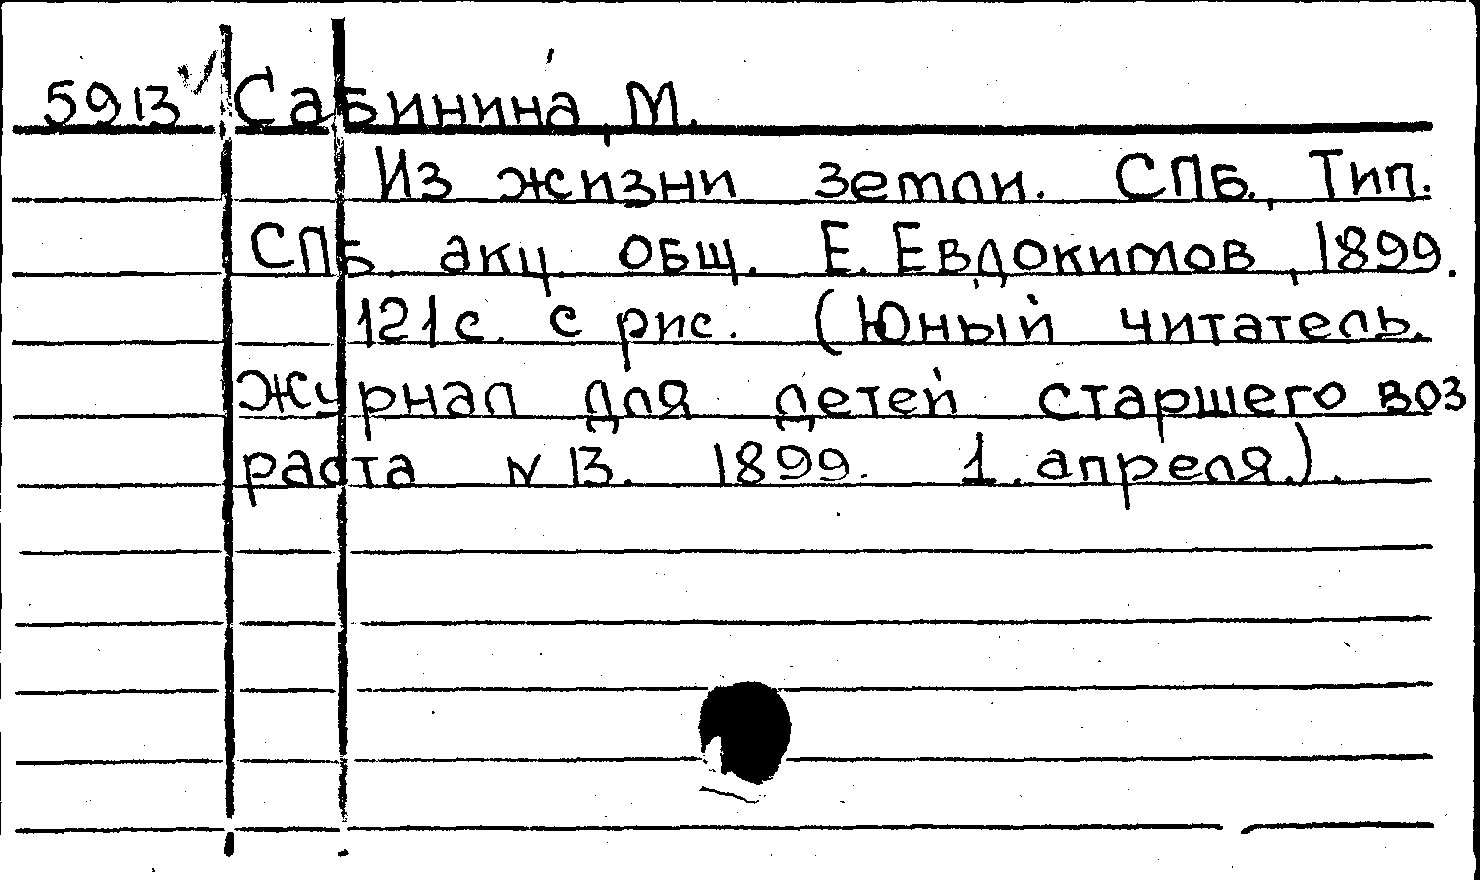 5913 Сабинина, М.
Из жизни земли. СПБ., Тип.
СПБ. акц. общ. Е. Евдокимов, 1899.
121с. с рис. (Юный читатель.
Журнал для детей старшего воз
раста N 13. 1899. 1. апреля.).